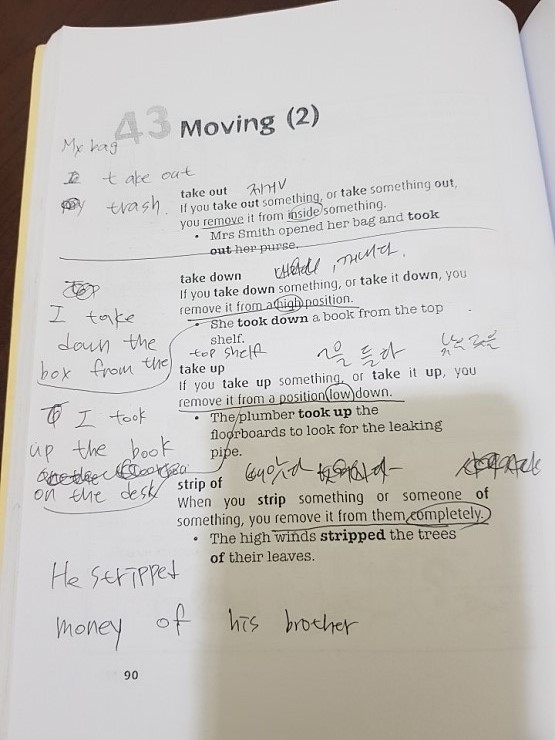 43 Moving (2)
My bag
I take out
my trash.
take out 제거
If you take out something, or take something out,
you remove it from inside something.
• Mrs Smith opened her bag and took
out her purse.
take down
If you take down something, or take it down, you
remove it from a high position.
• She took down a book from the top
shelf.
I take
down the
box from the
top shelf
take up
If you take up something, or take it up, you
remove it from a position low down.
• The plumber took up the
floorboards to look for the leaking
pipe.
I took
up the book
on the desk
strip of
When you strip something or someone of
something, you remove it from them completely.
• The high winds stripped the trees
of their leaves.
He stripped
money of his brother
90